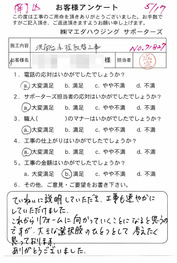 お客様アンケート 5/17
この度は工事のご用命を頂きありがとうございました。お手数ですがご記入頂き、ご返送頂きますようお願い申し上げます。
㈱マエダハウジング サポーターズ
施工内容
お客様名
様
担当者
1. 電話の応対はいかがでしたでしょうか？
a.大変満足 b.満足 c.やや不満 d.不満
2. サポーターズ担当者の応対はいかがでしたでしょうか？
a.大変満足 b.満足 c.やや不満 d.不満
3. 職人( )のマナーはいかがでしたでしょうか？
a.大変満足 b.満足 c.やや不満 d.不満
4. 工事の仕上がりはいかがでしたでしょうか？
a.大変満足 b.満足 c.やや不満 d.不満
5. 工事の金額はいかがでしたでしょうか？
a.大変満足 b.満足 c.やや不満 d.不満
6. その他、ご意見・ご要望をお書き下さい。
ていねいに説明していただき、工事も速やかに
していただけました。
これからリフォームに向かっていくことになると思うの
ですが、大きな選択肢のひとつとして考えたく
思っております。
ありがとうございました。